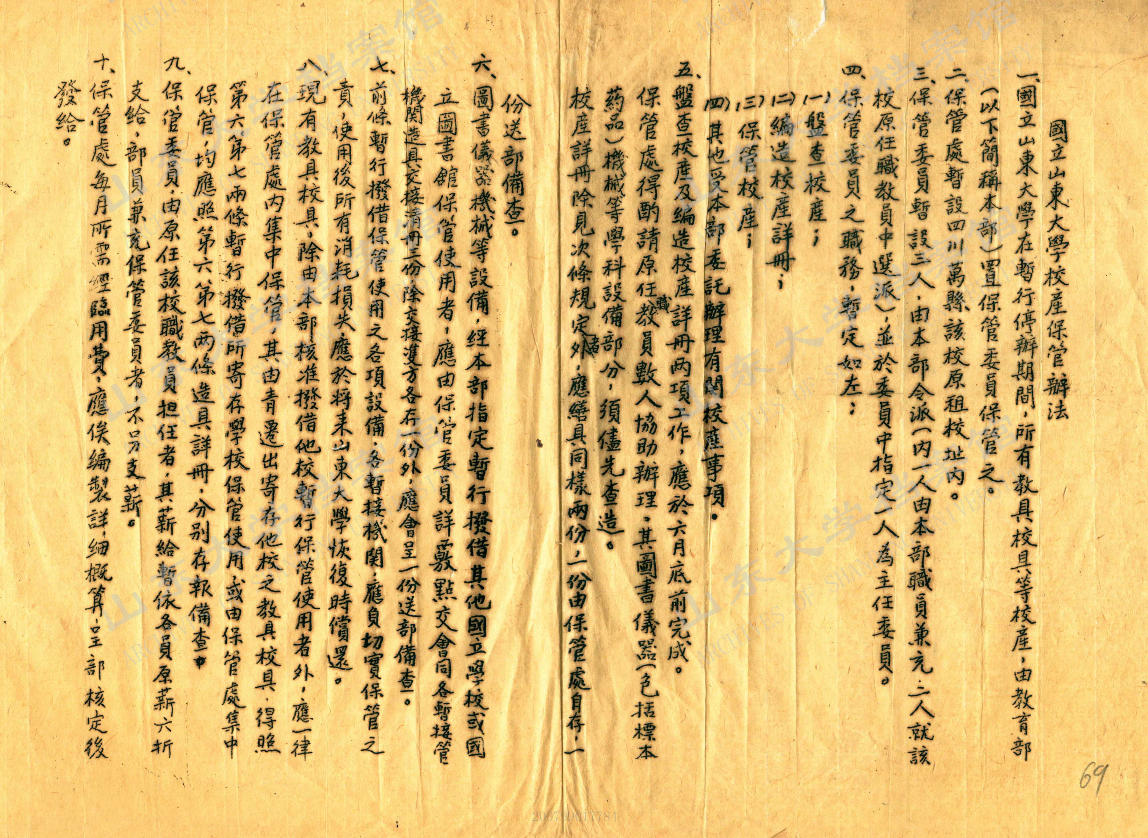 國立山東大學校產保管辦法
一、國立山東大學在暫行停辦期間，所有教具校具等校產，由教育部
（以下簡稱本部）置保管委員保管之。
二、保管處暫設四川萬縣該校原租校址內。
三、保管委員暫設三人，由本部令派（內一人由本部職員兼充，二人就該
校原任職教員中選派）並於委員中指定一人為主任委員。
四、保管委員之職務，暫定如左：
（一）盤查校產；
（二）編造校產詳冊；
（三）保管校產；
（四）其他受本部委託辦理有關校產事項。
五、盤查校產及編造校產詳冊兩項工作，應於六月底前完成。
保管處得酌請原任職教員數人協助辦理。其圖書儀器（包括標本
藥品）機械等學科設備部分，須儘先查造。
校產詳冊除見次條規定者外，應繕具同樣兩份，一份由保管處自存，一
份送部備查。
六、圖書儀器機械等設備，經本部指定暫行撥借其他國立學校或國
立圖書館保管使用者，應由保管委員詳覈點交會同各暫接管
機関造具交接清冊三份除交接雙方各存一份外，應會呈一份送部備查。
七、前條暫行撥借保管使用之各項設備，各暫接機関，應負切實保管之
責，使用後所有消耗損失應於將来山東大學恢復時償還。
八、現有教具校具，除由本部核准撥借他校暫行保管使用者外，應一律
在保管處內集中保管，其由青遷出寄存他校之教具校具，得照
第六第七兩條暫行撥借所寄存學校保管使用或由保管處集中
保管，均應照第六第七兩條造具詳冊，分別存報備查。
九、保管委員由原任該校職教員担任者，其薪給暫依各員原薪六折
支給，部員兼充保管委員者，不另支薪。
十、保管處每月所需經臨用費，應俟編製詳細概算，呈部核定後
發給。
69
山东大学档案馆